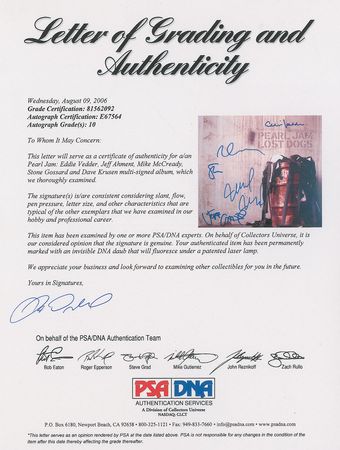 Letter of Grading and
Authenticity
Wednesday, August 09, 2006
Grade Certification: 81562092
Autograph Certification: E67564
Autograph Grade(s): 10
To Whom It May Concern:
This letter will serve as a certificate of authenticity for a/an
Pearl Jam: Eddie Vedder, Jeff Ahment, Mike McCready,
Stone Gossard and Dave Krusen multi-signed album, which
we thoroughly examined.
The signature(s) is/are consistent considering slant, flow,
pen pressure, letter size, and other characteristics that are
typical of the other exemplars that we have examined in our
hobby and professional career.
PEARL JAM
LOST DOGS
This item has been examined by one or more PSA/DNA experts. On behalf of Collectors Universe, it is
our considered opinion that the signature is genuine. Your authenticated item has been permanently
marked with an invisible DNA daub that will fluoresce under a patented laser lamp.
We appreciate your business and look forward to examining other collectibles for you in the future.
Yours in Signatures,
On behalf of the PSA/DNA Authentication Team
Bob Eaton Roger Epperson Steve Grad Mike Gutierrez John Reznikoff Zach Rullo
PSA DNA
AUTHENTICATION SERVICES
A Division of Collectors Universe
NASDAQ: CLCT
P.O. Box 6180, Newport Beach, CA 92658 • 800-325-1121 • Fax: 949-833-7660 • info@psadna.com • www.psadna.com
*This letter serves as an opinion rendered by PSA at the date listed above. PSA is not responsible for any changes in the condition of the
item after this date thereby affecting the grade thereafter.